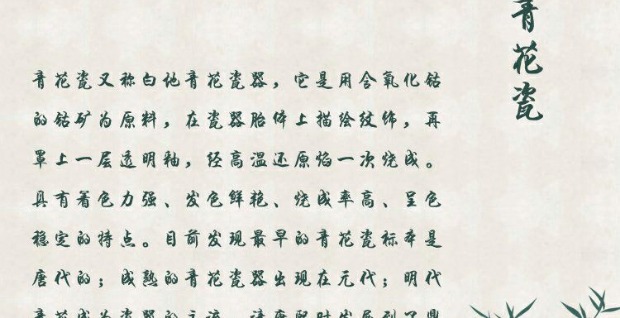 青花瓷
青花瓷又称白地青花瓷器，它是用含氧化钴
的钴矿为原料，在瓷器胎体上描绘纹饰，再
罩上一层透明釉，经高温还原焰一次烧成。
具有着色力强、发色鲜艳、烧成率高、呈色
稳定的特点。目前发现最早的青花瓷标本是
唐代的；成熟的青花瓷器出现在元代；明代
青花成为瓷器的主流，清康熙时发展到了鼎